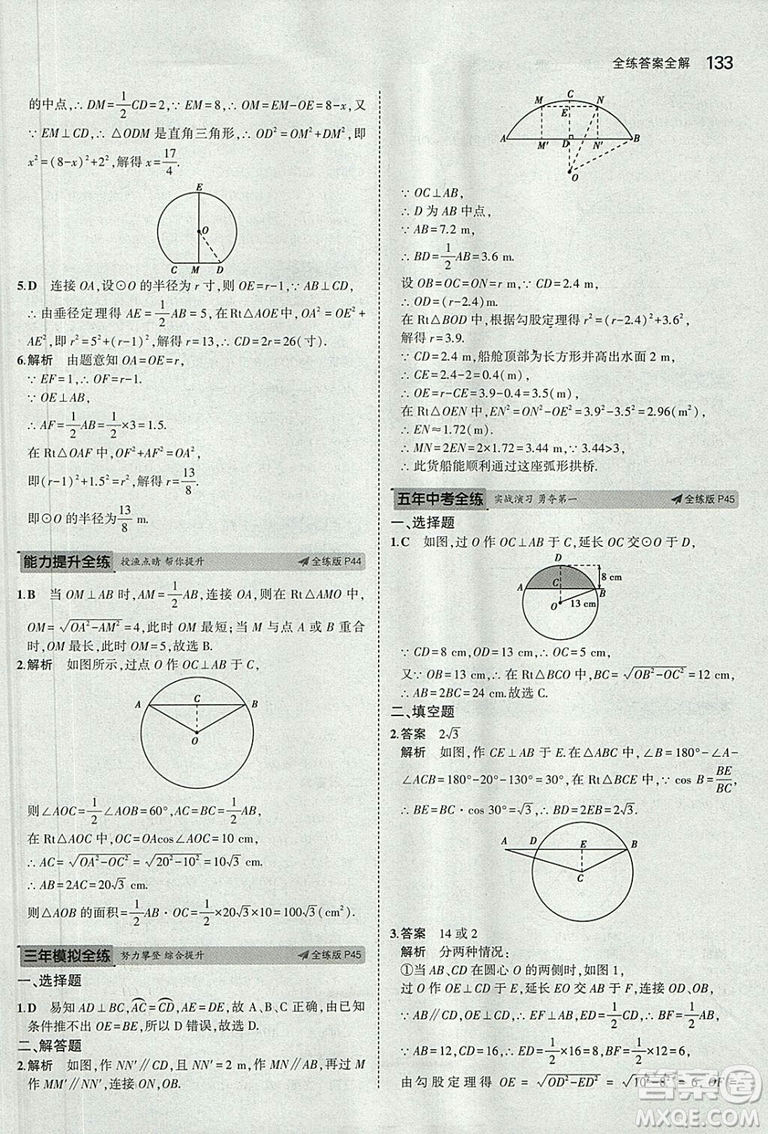 全练答案全解 133
的中点,∴DM=1/2CD=2,∵EM=8,∴OM=EM-OE=8-x,又
∵EM⊥CD,∴△ODM是直角三角形,∴OD²=OM²+DM²,即
x²=(8-x)²+2²,解得x=17/4.
E
O
C M D
5.D 连接OA,设⊙O的半径为r寸,则OE=r-1,∵AB⊥CD,
∴由垂径定理得AE=1/2AB=5,在Rt△AOE中,OA²=OE²+
AE²,即r²=5²+(r-1)²,解得r=13,∴CD=2r=26(寸).
6.解析 由题意知OA=OE=r,
∵EF=1,∴OF=r-1.
∵OE⊥AB,
∴AF=1/2AB=1/2×3=1.5.
在Rt△OAF中,OF²+AF²=OA²,
即(r-1)²+1.5²=r²,解得r=13/8.
即⊙O的半径为13/8 m.
能力提升全练 授渔点睛 帮你提升 全练版P44
1.B 当OM⊥AB时,OM最短,连接OA,则在Rt△AMO中,
OM=√(OA²-AM²)=4,此时OM最短;当M与点A或B重合
时,OM最长,此时OM=5,故选B.
2.解析 如图所示,过点O作OC⊥AB于C,
A C B
O
则∠AOC=1/2∠AOB=60°,AC=BC=1/2AB,
在Rt△AOC中,OC=OAcos∠AOC=10 cm,
∴AC=√(OA²-OC²)=√(20²-10²)=10√3 cm,
∴AB=2AC=20√3 cm,
则△AOB的面积=1/2AB·OC=1/2×20√3×10=100√3 cm².
三年模拟全练 努力攀登 综合提升 全练版P45
一、选择题
1.D 易知AD⊥BC,AC=CD,AE=DE,故A、B、C正确,由已知
条件推不出OE=BE,所以D错误,故选D.
二、解答题
2.解析 如图,作NN′∥CD,使CN=2 m,作MN∥AB,再过M
作MM′∥NN′,连接OB,ON.
M C N
E
A M′ D N′ B
O
∵OC⊥AB,
∴D为AB中点,
∵AB=7.2 m,
∴BD=1/2AB=3.6 m.
设OB=OC=ON=r m,∵CD=2.4 m,
∴OD=(r-2.4)m.
在Rt△BOD中,根据勾股定理得r²=(r-2.4)²+3.6²,
解得r=3.9.
∵CD=2.4 m,船舱顶部为长方形并高出水面2 m,
∴CE=2.4-2=0.4(m),
∴OE=r-CE=3.9-0.4=3.5(m),
在Rt△OEN中,EN²=ON²-OE²=3.9²-3.5²=2.96(m²),
∴EN≈1.72 m.
∴MN=2EN=2×1.72=3.44 m.∵3.44>3,
∴此货船能顺利通过这座弧形拱桥.
五年中考全练 实战演习 勇夺第一 全练版P45
一、选择题
1.C 如图,过O作OC⊥AB于C,延长OC交⊙O于D,
D
8 cm
A C B
O 13 cm
∵CD=8 cm,OD=13 cm,∴OC=5 cm,
又∵OB=13 cm,∴在Rt△BCO中,BC=√(OB²-OC²)=12 cm,
∴AB=2BC=24 cm.故选C.
二、填空题
2.答案 2√3
解析 如图,作CE⊥AB于E.在△ABC中,∠B=180°-∠A-
∠ACB=180°-20°-130°=30°,在Rt△BCE中,∵cos B=BE/BC,
∴BE=BC·cos 30°=√3,∴BD=2EB=2√3.
A D E B
C
3.答案 14或2
解析 分两种情况:
①当AB与CD在圆心O的两侧时,如图,
过O作OE⊥CD于E,延长EO交AB于F,连接OC、OA,
∵AB∥CD,OE⊥CD,∴EF⊥AB,∴CE=1/2CD,AF=1/2AB,
∵AB=12,CD=16,∴CE=1/2×16=8,AF=1/2×12=6,
由勾股定理得OE=√(OC²-CE²)=√(10²-8²)=6,OF=
作业帮
MXQE.COM